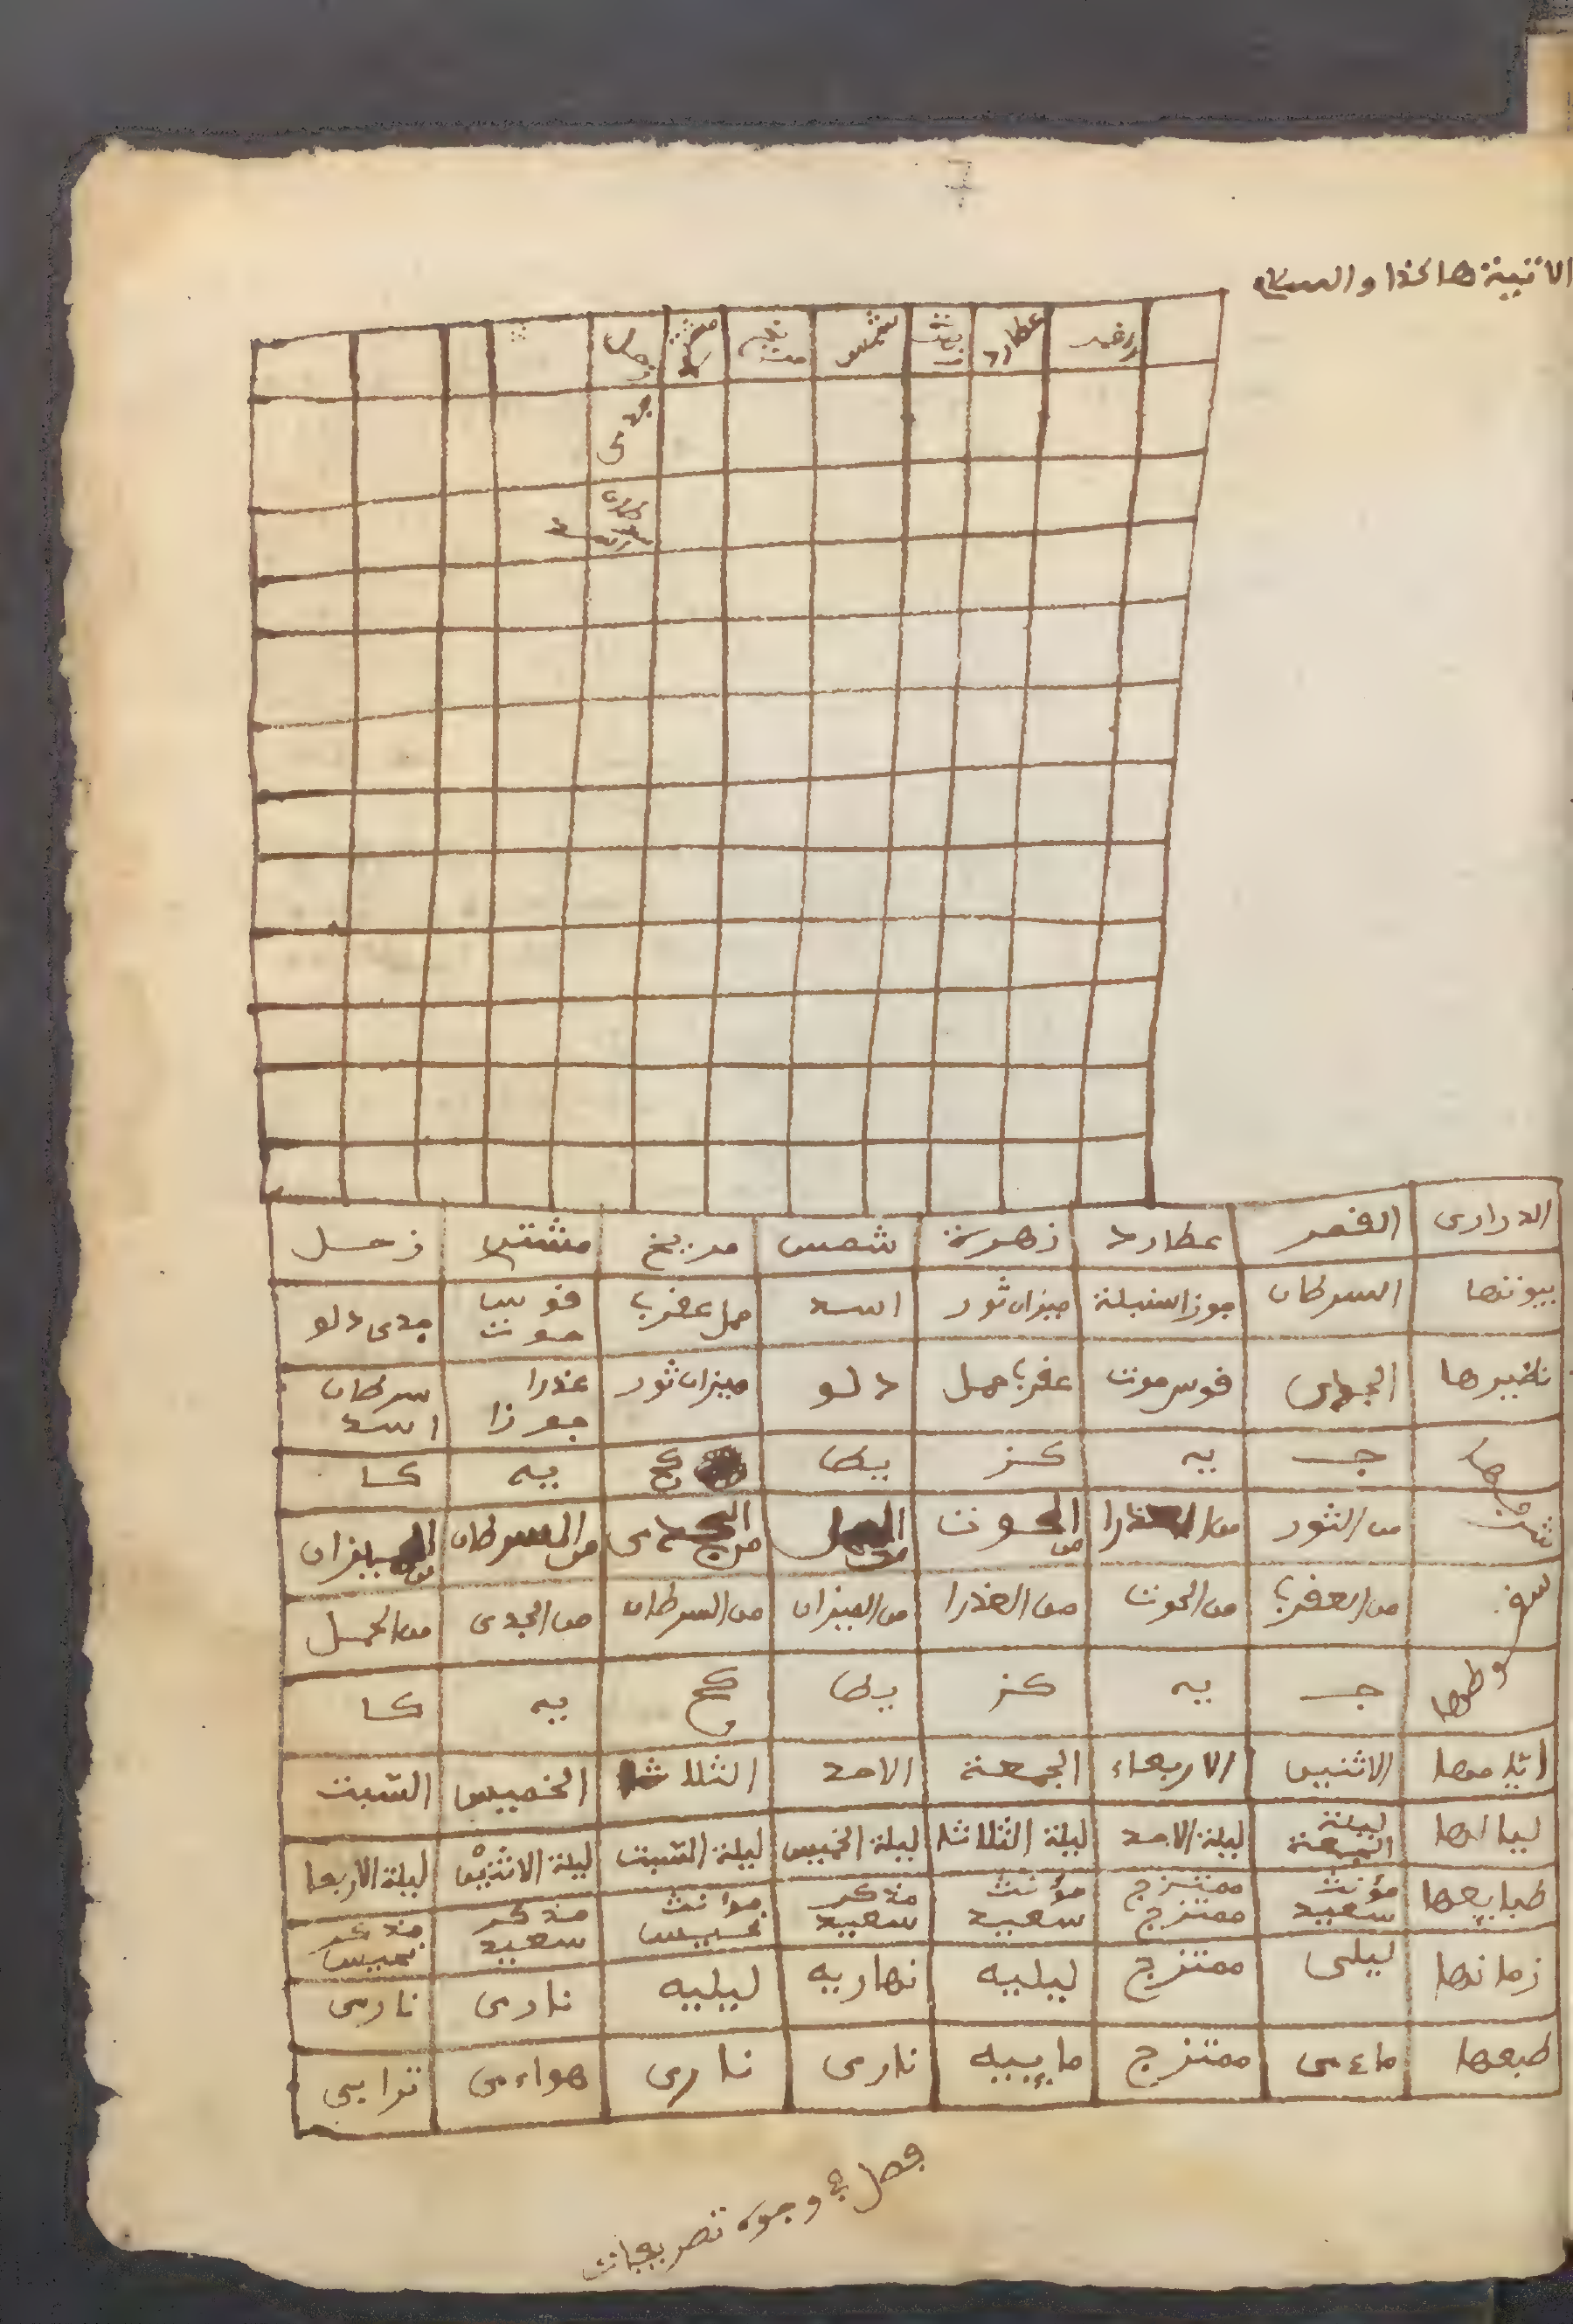 7
الاتية هاكذا والسلام
قمر عطارد زهرت شمس مريخ مشترى زحل
جدى
الدرارى القمر عطارد زهرة شمس مريخ مشترى زحل
بيوتها السرطان جوزا سنبلة ميزان ثور اسد حمل عقرب قوس حوت جدى دلو
نظيرها الجدى قوس حوت عقرب حمل دلو ميزان ثور عذرا جوزا سرطان اسد
جـ يه كز يط كح يه كا
من الثور من العذرا من الحوت من الحمل من الجدى من السرطان من الميزان
من العقرب من الحوت من العذرا من الميزان من السرطان من الجدى من الحمل
جـ يه كز يط كح يه كا
ايامها الاثنين الاربعاء الجمعة الاحد الثلاثاء الخميس السبت
ليالها ليلة الجمعة ليلة الاحد ليلة الثلاثا ليلة الخميس ليلة السبت ليلة الاثنين ليلة الاربعا
طبايعها مؤنث سعيد ممتزج ممتزج مؤنث سعيد مذكر سعيد موانث نحيس مذكر سعيد مذكر نحيس
زمانها ليلى ممتزج ليليه نهاريه ليليه نارى نارى
طبعها ماءى ممتزج مايييه نارى نارى هواءى ترابى
فصل في وجوه تصريفات